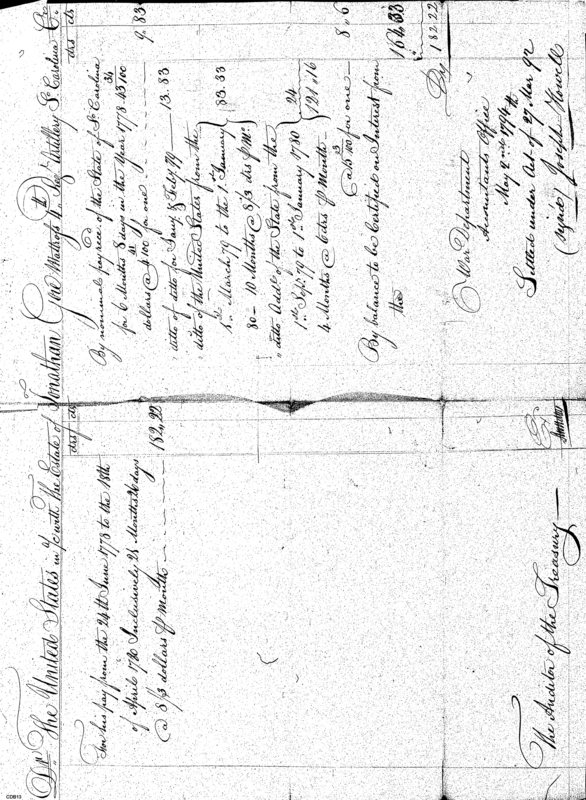 Dr. The United States in a/c with the Estate of Jonathan Gore Matross 4th Regt Artillery So. Carolina Cr.
drs cts
For his pay from the 24th June 1778 to the 18th
of April 1780 Inclusively 21 Months 26 days
@ 8/3 dollars P Month 182,22
The Auditor of the Treasury
drs cts
By nominal pay recd of the State of So. Carolina
for 6 Months 8 days in the Year 1778 43 34/100
dollars @ 100 for one 9.83
ditto of ditto for Jany & Feby 79 13.83
ditto of the United States from the
1st March 79 to the 1st January
80 - 10 Months @ 8/3 drs P Mo. 83.33
ditto Addl. of the State from the
1st Sepr. 79 to 1st January 1780
4 Months @ 6 drs P Month 24
@ 100 for one 8,6
By balance to be Certified on Interest from
the
182.22
War Department
Accountants Office
May 2nd 1794
Settled under Act of 27 Mar 92
(signed) Joseph Howell
CDB13